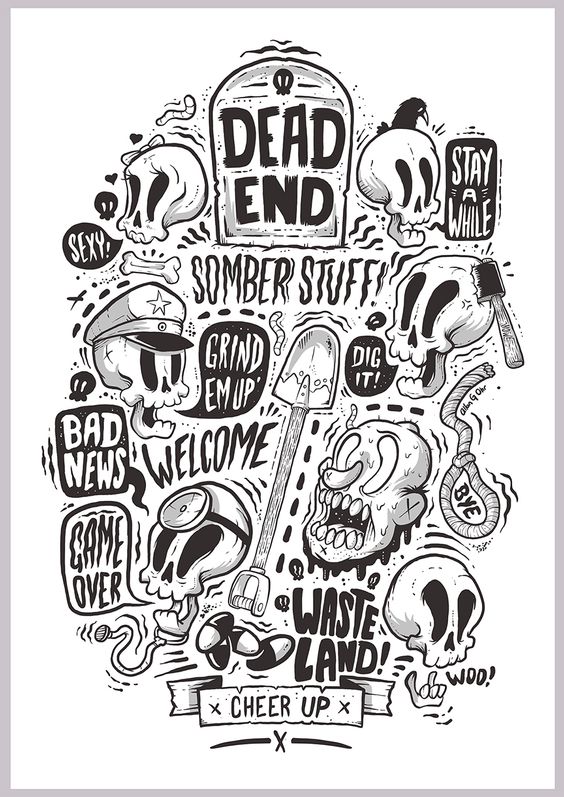 DEAD
END
STAY
A
WHILE
SEXY!
SOMBER STUFF!
GRIND
EM UP
DIG
IT!
BAD
NEWS
WELCOME
BYE
GAME
OVER
WASTE
LAND!
WOO!
X CHEER UP X
X